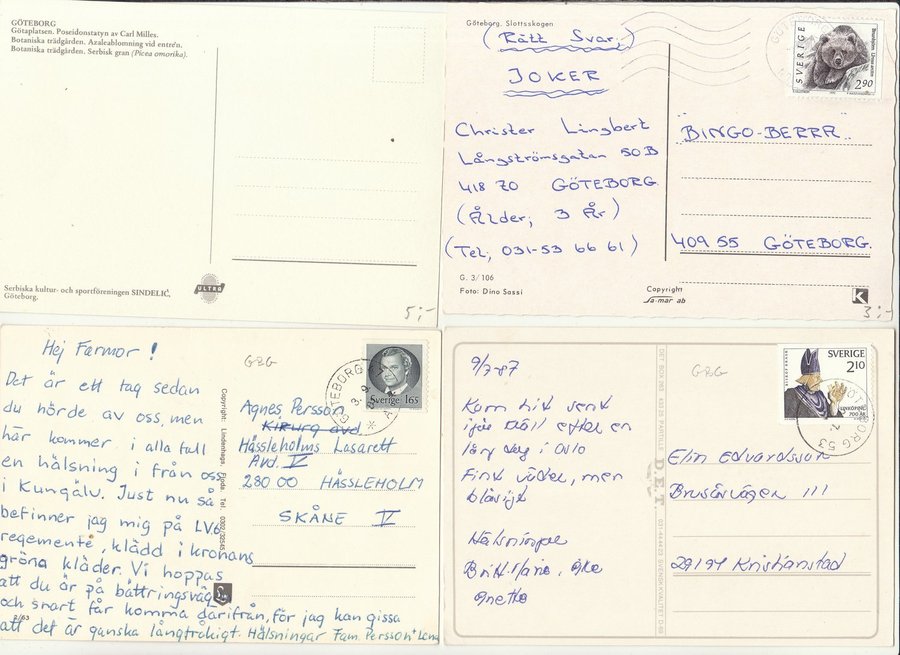 GÖTEBORG
Götaplatsen. Poseidonstatyn av Carl Milles.
Botaniska trädgården. Azaleablomning vid entrén.
Botaniska trädgården. Serbisk gran (Picea omorika).
Serbiska kultur- och sportföreningen SINDELIĆ,
Göteborg.
ULTRA
5:-
Göteborg. Slottsskogen
(Rätt Svar;)
JOKER
Christer Lingbert
Långströmsgatan 50B
418 70 GÖTEBORG
(Ålder; 3 År)
(Tel; 031-53 66 61)
G. 3/106
Foto: Dino Sassi
Copyright
Sa-mar ab
K
3:-
SVERIGE
2.90
"BINGO-BERRA"
409 55 GÖTEBORG.
Hej Farmor!
Det är ett tag sedan
du hörde av oss, men
här kommer i alla fall
en hälsning i från oss
i Kungälv. Just nu så
befinner jag mig på LV6
regemente, klädd i kronans
gröna kläder. Vi hoppas
att du är på bättringsväg
och snart får komma därifrån, för jag kan gissa
att det är ganska långtråkigt. Hälsningar Fam. Persson + Lena
2/63
GBG
GÖTEBORG
Sverige 165
Agnes Persson
Kirurg avd.
Hässleholms Lasarett
Avd. V
280 00 HÄSSLEHOLM
SKÅNE V
9/7-87
Kom hit sent
igår kväll efter en
lång dag i Oslo
Fint väder, men
blåsigt
Hälsningar
Britt-Marie, Åke
Anette
GBG
SVERIGE
2.10
LINKÖPING
700 ÅR
GÖTEBORG 53
D.E.T.
Elin Edvardsson
Brusåsvägen 111
29194 Kristianstad